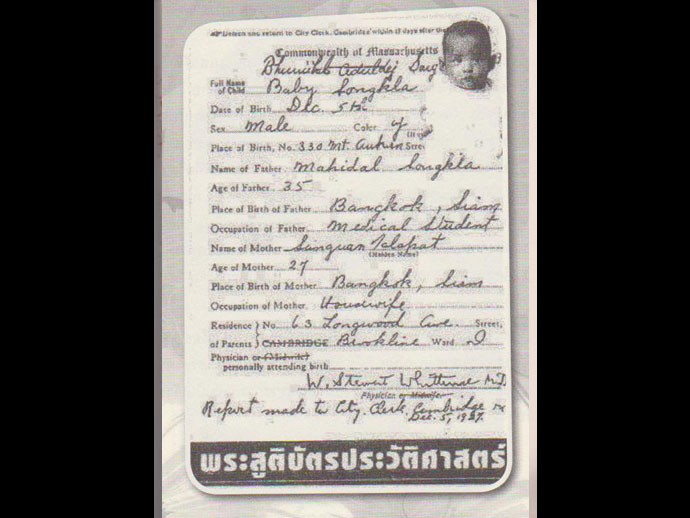 Please return to City Clerk, Cambridge within 15 days after the
Commonwealth of Massachusetts
Bhumibol Aduldej Song
Full Name of Child Baby Songkla
Date of Birth Dec. 5th
Sex Male Color y
Place of Birth, No. 330 Mt. Auburn Street
Name of Father Mahidal Songkla
Age of Father 35
Place of Birth of Father Bangkok, Siam
Occupation of Father Medical Student
Name of Mother Sanguan Talapat
(Maiden Name)
Age of Mother 27
Place of Birth of Mother Bangkok, Siam
Occupation of Mother Housewife
Residence of Parents } No. 63 Longwood Ave. Street,
CAMBRIDGE Brookline Ward
Physician or (Midwife)
personally attending birth
W. Stewart Whittemore M.D.
Physician or Midwife.
Report made to City Clerk, Cambridge
Dec. 5, 1927.
พระสูติบัตรประวัติศาสตร์